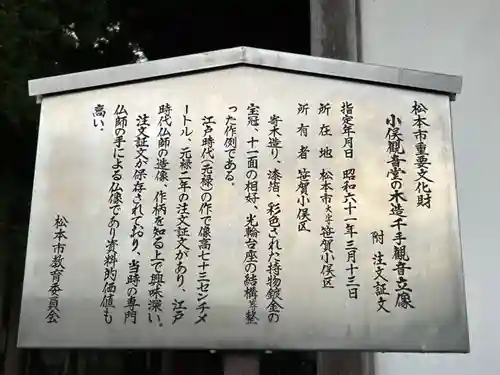 松本市重要文化財
小俣観音堂の木造千手観音立像
附 注文証文
指定年月日 昭和六十一年三月十三日
所在地 松本市大字笹賀小俣区
所有者 笹賀小俣区
寄木造り、漆箔、彩色された持物鍍金の
宝冠、十一面の相好、光輪台座の結構等整
った作例である。
江戸時代(元禄)の作で像高七十三センチメ
ートル、元禄二年の注文証文があり、江戸
時代仏師の造像、作柄を知る上で興味深い。
注文証文が保存されており、当時の専門
仏師の手による仏像であり資料的価値も
高い、
松本市教育委員会